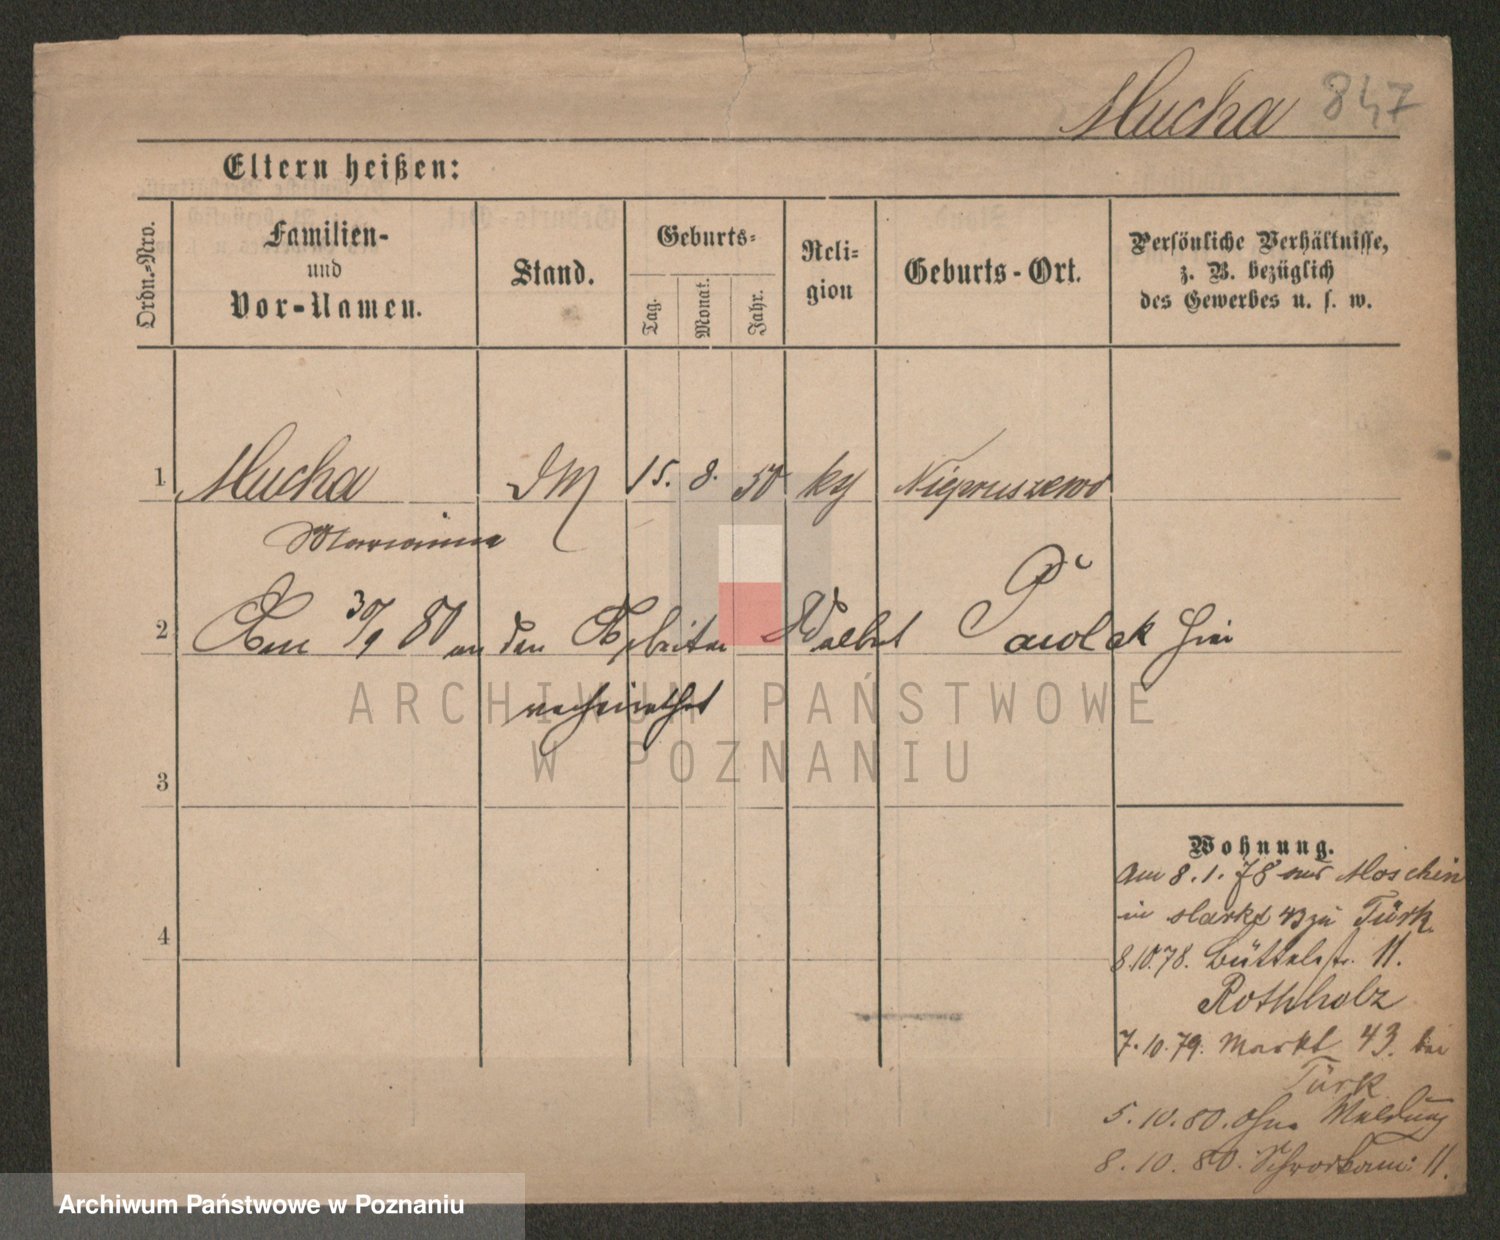 Mucha 847
Eltern heißen:
Ordn.-Nro.
Familien-
und
Vor-Namen.
Stand.
Geburts-
Tag.
Monat.
Jahr.
Reli-
gion
Geburts-Ort.
Persönliche Verhältnisse,
z. B. bezüglich
des Gewerbes u. s. w.
1 Mucha DM 15. 8. 50 kg Niepruszewo
Marianna
2 Am 30/9 80 an den Arbeiter Adalbert Pawlak hier
verheirathet
3
4
Wohnung.
Am 8.1.78 aus Moschin
in Markt 43 zu Türk
8.10.78. Büttelstr. 11.
Rothholz
7.10.79. Markt 43. bei
Türk
5.10.80. ohne Meldung
8.10.80. 11.
ARCHIWUM PAŃSTWOWE
W POZNANIU
Archiwum Państwowe w Poznaniu